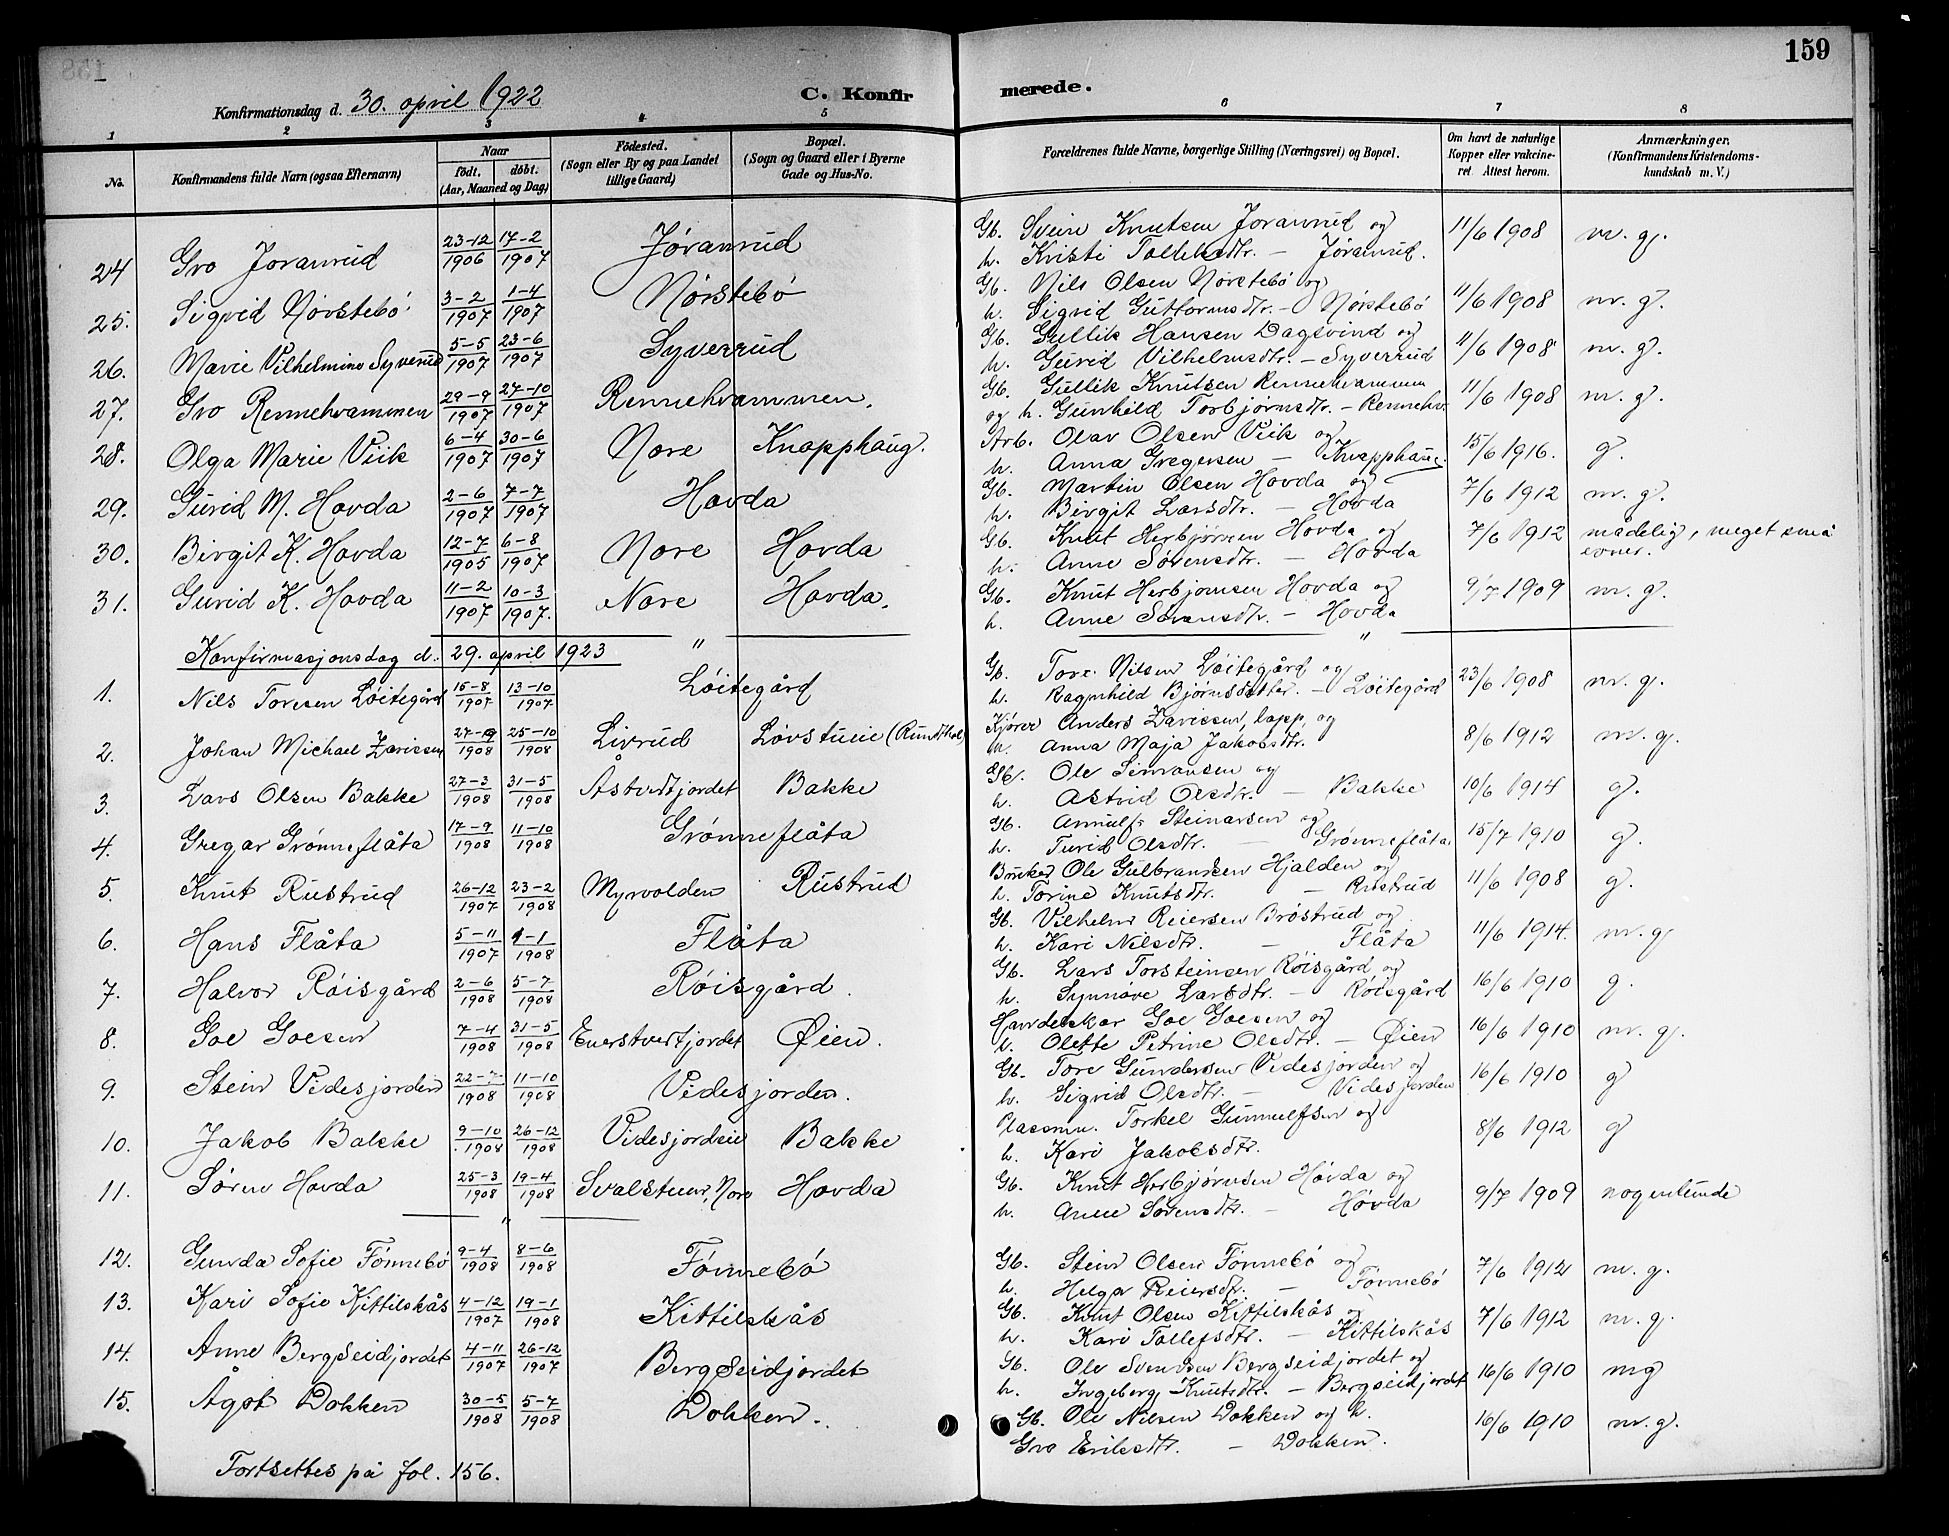 159
Konfirmationsdag d. 30. april 1922
C. Konfirmerede.
1 2 3 4 5 6 7 8
No. Konfirmandens fulde Navn (ogsaa Efternavn) Naar født. døbt. (Aar, Maaned og Dag) Fødested. (Sogn eller By og paa Landet tillige Gaard) Bopæl. (Sogn og Gaard eller i Byerne Gade og Hus-No. Forældrenes fulde Navne, borgerlige Stilling (Næringsvei) og Bopæl. Om havt de naturlige Kopper eller vakcineret Attest herom. Anmærkninger. (Konfirmandens Kristendomskundskab m. V.)
24 Gro Joranrud 23-12 1906 17-2 1907 Jøranrud Gb. Svein Knutsen Joranrud og
h. Kristi Tollefsdtr. - Jøranrud. 11/6 1908 m. g.
25. Sigrid Nørstebö 3-2 1907 1-4 1907 Nørstebö Gb. Nils Olsen Nørstebö og
h. Sigrid Guttormsdtr. - Nørstebö 11/6 1908 m. g.
26. Marie Vilhelmine Syverud 5-5 1907 23-6 1907 Syverrud Gb. Gullik Hansen Dagsvind og
h. Gurid Vilhelmsdtr. - Syverrud 11/6 1908 m. g.
27. Gro Rennehvammen 29-9 1907 27-10 1907 Rennehvammen. Gb. Gullik Knutsen Rennehvammen
og h. Gunhild Torbjørnsdtr. - Rennehv. 11/6 1908 m. g.
28. Olga Marie Viik 6-4 1907 30-6 1907 Nore Knapphaug. Arb. Olav Olsen Viik og
h. Anna Gregersen - Knapphaug 15/6 1916. g.
29. Gurid M. Hovda 2-6 1907 7-7 1907 Hovda Gb. Martin Olsen Hovda og
h. Birgit Larsdtr. - Hovda 7/6 1912 m. g.
30. Birgit K. Hovda 12-7 1905 6-8 1907 Nore Hovda Gb. Knut Herbjørnsen Hovda og
h. Anne Sørensdtr. - Hovda 7/6 1912 mådelig, meget små evner.
31. Gurid K. Hovda 11-2 1907 10-3 1907. Nore Hovda. Gb. Knut Herbjørnsen Hovda og
h. Anne Sørensdtr. - Hovda 9/7 1909 m. g.
Konfirmasjonsdag d. 29. april 1923 " "
1. Nils Toresen Løitegård 15-8 1907 13-10 1907 Løitegård Gb. Tore Nilsen Løitegård og
h. Ragnhild Bjørnsdatter. - Løitegård 23/6 1908 m. g.
2. Johan Michael Zarissen 1908 25-10 1908 Livrud Løvstueie Kjører Anders Zarissen, lapp, og
h. Anna Maja Jakobsdtr. 8/6 1912 m. g.
3. Lars Olsen Bakke 27-3 1908 31-5 1908 Åstvedtjordet Bakke Gb. Ole Simonsen og
h. Astrid Olsdtr. - Bakke 10/6 1914 g.
4. Gregar Grønneflåta 17-9 1908 11-10 1908 Grønneflåta Gb. Steinarsen og
h. Turid Olsdtr. - Grønneflåta 15/7 1910 g.
5. Knut Rustrud 26-12 1907 23-2 1908 Myrvolden Rustrud Bruker Ole Gulbransen Hjalden og
h. Torine Knutsdtr. - Rustrud 11/6 1908 g.
6. Hans Flåta 5-11 1907 1-1 1908 Flåta Gb. Vilhelm Reiersen Brøstrud og
h. Kari Nilsdtr. - Flåta 11/6 1914. m. g
7. Halvor Røisgård 2-6 1908 5-7 1908 Røisgård. Gb. Lars Torsteinsen Røisgård og
h. Synnøve Larsdtr. - Røisgård 16/6 1910 g.
8. Goe Goesen 7-4 1908 31-5 1908 Enerstvertjordet Øien. Handelskar Goe Goesen og
h. Olette Petrine Olsdtr. - Øien 16/6 1910 m. g.
9. Stein Videsjorden 22-7 1908 11-10 1908 Videsjorden. Gb. Tore Gundersen Videsjorden og
h. Sigrid Olsdtr. - Videsjorden 16/6 1910 g
10. Jakob Bakke 9-10 1908 26-12 1908 Videsjordeie Bakke Plassmn. Torkel Gunnulfsen og
h. Kari Jakobsdtr. 8/6 1912 g
11. Søren Hovda 25-3 1908 19-4 1908 Svalstuen, Nore Hovda Gb. Knut Herbjørnsen Hovda og
h. Anne Sørensdtr. - Hovda 9/7 1909 nogenlunde
"
12. Gunda Sofie Fönnebö 9-4 1908 8-6 1908 Fönnebö Gb. Stein Olsen Fönnebö og
h. Helga Reiersdtr. - Fönnebö 7/6 1912 m. g.
13. Kari Sofie Kittilskås 4-12 1907 19-1 1908 Kittilskås Gb. Knut Olsen Kittilskås og
h. Kari Tollefsdtr. - Kittilskås 7/6 1912 m. g.
14. Anne Bergseidjordet 4-11 1907 26-12 1907 Bergseidjordet Gb. Ole Svensen Bergseidjordet og
h. Ingeborg Knutsdtr. - Bergseidjordet 16/6 1910 mg
15. Ågot Dokken 30-5 1908 5-7 1908 Dokken. Gb. Ole Nilsen Dokken og h.
Gro Eriksdtr. - Dokken. 16/6 1910 m. g.
Fortsettes på fol. 156.